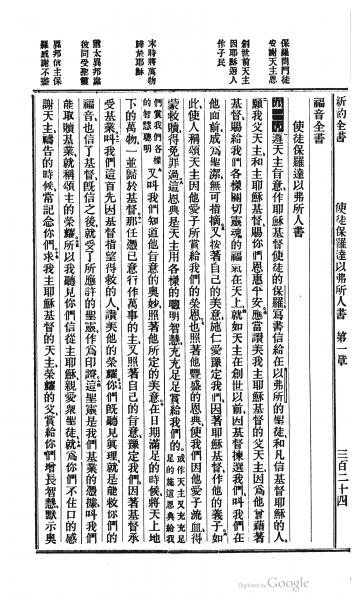 新約全書　使徒保羅達以弗所人書　第一章　三百二十四
福音全書
使徒保羅達以弗所人書
保羅問門徒
安謝天主恩
創世前天主
因耶穌選人
作子民
末時將萬物
歸於耶穌
猶太異邦靠
彼同受聖靈
異邦信主保
羅感謝不盡
第一章遵天主旨意、作耶穌基督使徒的保羅、寫書信給在以弗所的聖徒、和凡信基督耶穌的人、
願我父天主、和主耶穌基督、賜你們恩惠平安、應當讚美我主耶穌基督的父天主、因為他曾藉著
基督、賜給我們各樣關切靈魂的福氣在天上、就如天主在創世以前、因基督揀選我們、叫我們在
他面前、成為聖潔、無可指摘、又按著自己的美意、施仁愛豫定我們、因著耶穌基督作他的義子、如
此、使人稱頌天主因他愛子所賞給我們的榮恩、也照著他豐盛的恩典、使我們因他愛子流血、得
蒙收贖、得免罪過、這恩典是天主用各樣的聰明智慧、充充足足賞給我們的、或作天主又充充足足的施這恩典給我
們賞我們各樣的智慧聰明又叫我們知道他旨意的奧妙、照著他所定的美意、在日期滿足的時候、將天上地
下的萬物、一並歸於基督、那任憑己意行作萬事的主、又照著自己的旨意、豫定我們、因著基督承
受基業、叫我們這首先因基督指望得救的人、讚美他的榮耀、你們既聽見真理、就是能救你們的
福音、也信了基督、既信之後、就受了所應許的聖靈作為印證、這聖靈是我們基業的憑據、叫我們
能取贖基業、就稱頌主的榮耀、所以我聽見你們信從主耶穌、親愛眾聖徒、就為你們不住口的感
謝天主、禱告的時候、常記念你們、求我主耶穌基督的天主、榮耀的父、賞給你們增長智慧、默示奧
Digitized by Google